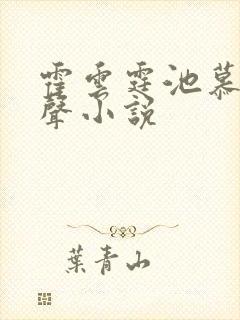 霍雲霆池慕
聲小說
葉青山